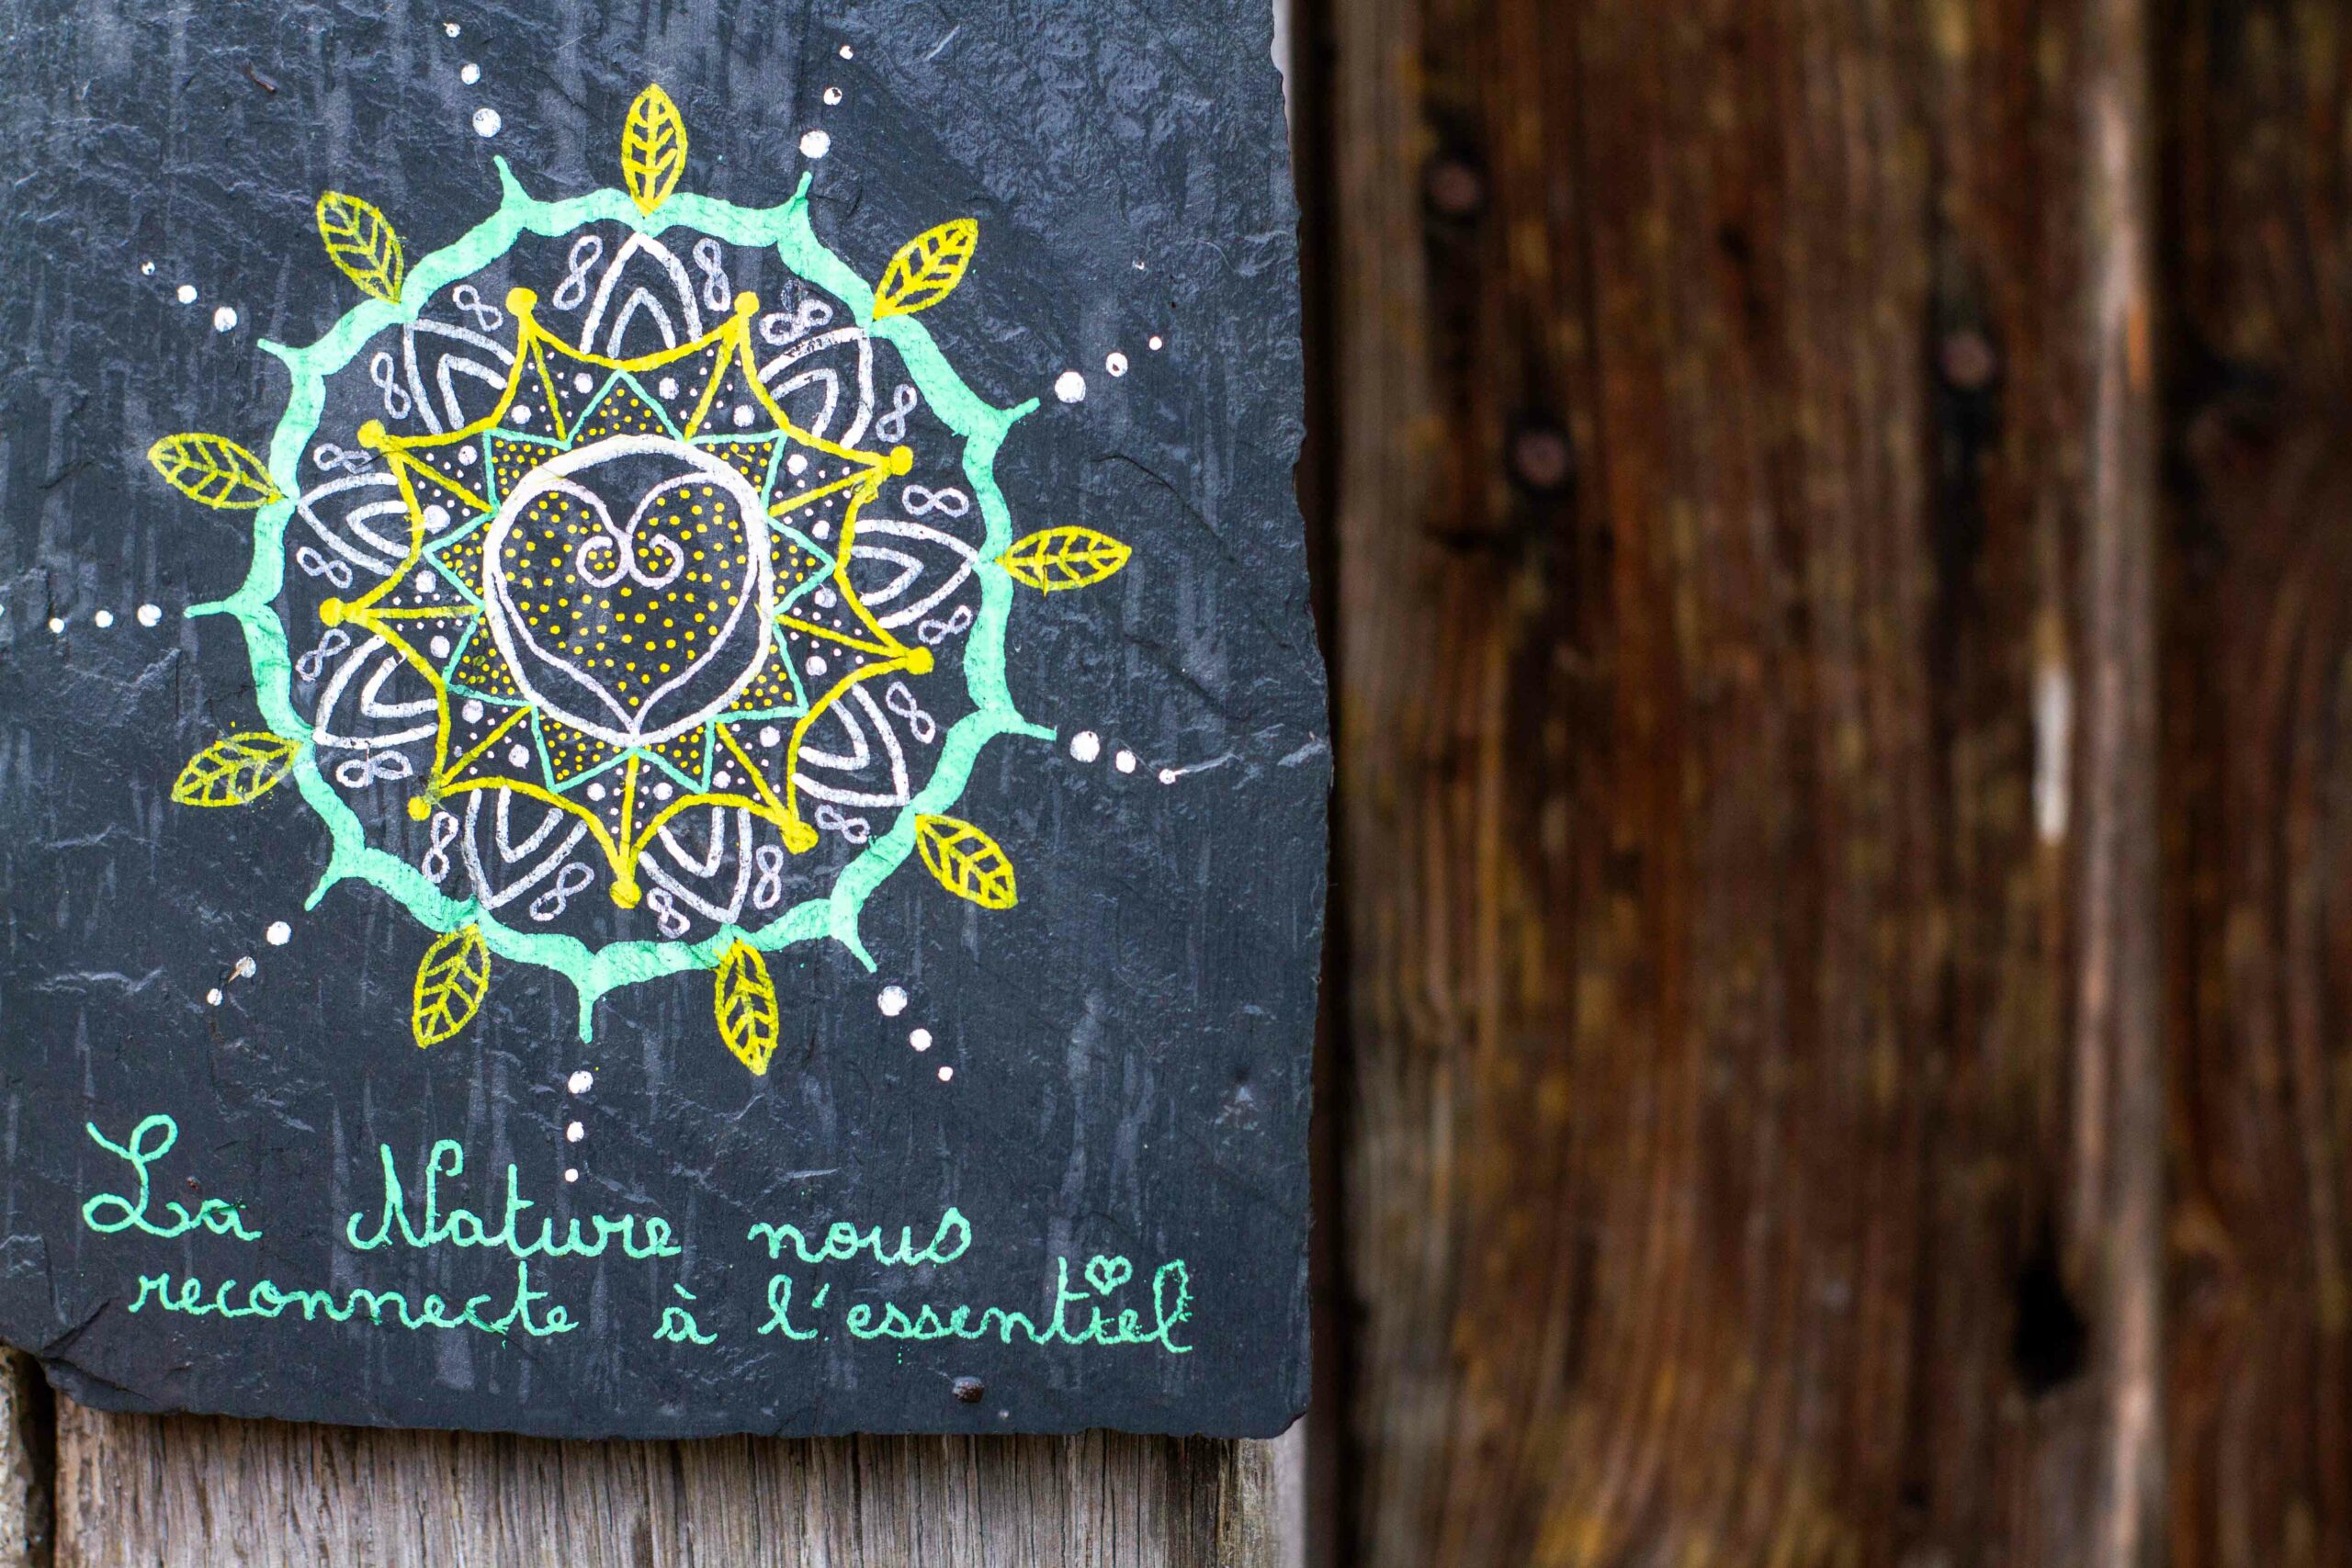 La Nature nous
reconnecte à l'essentiel